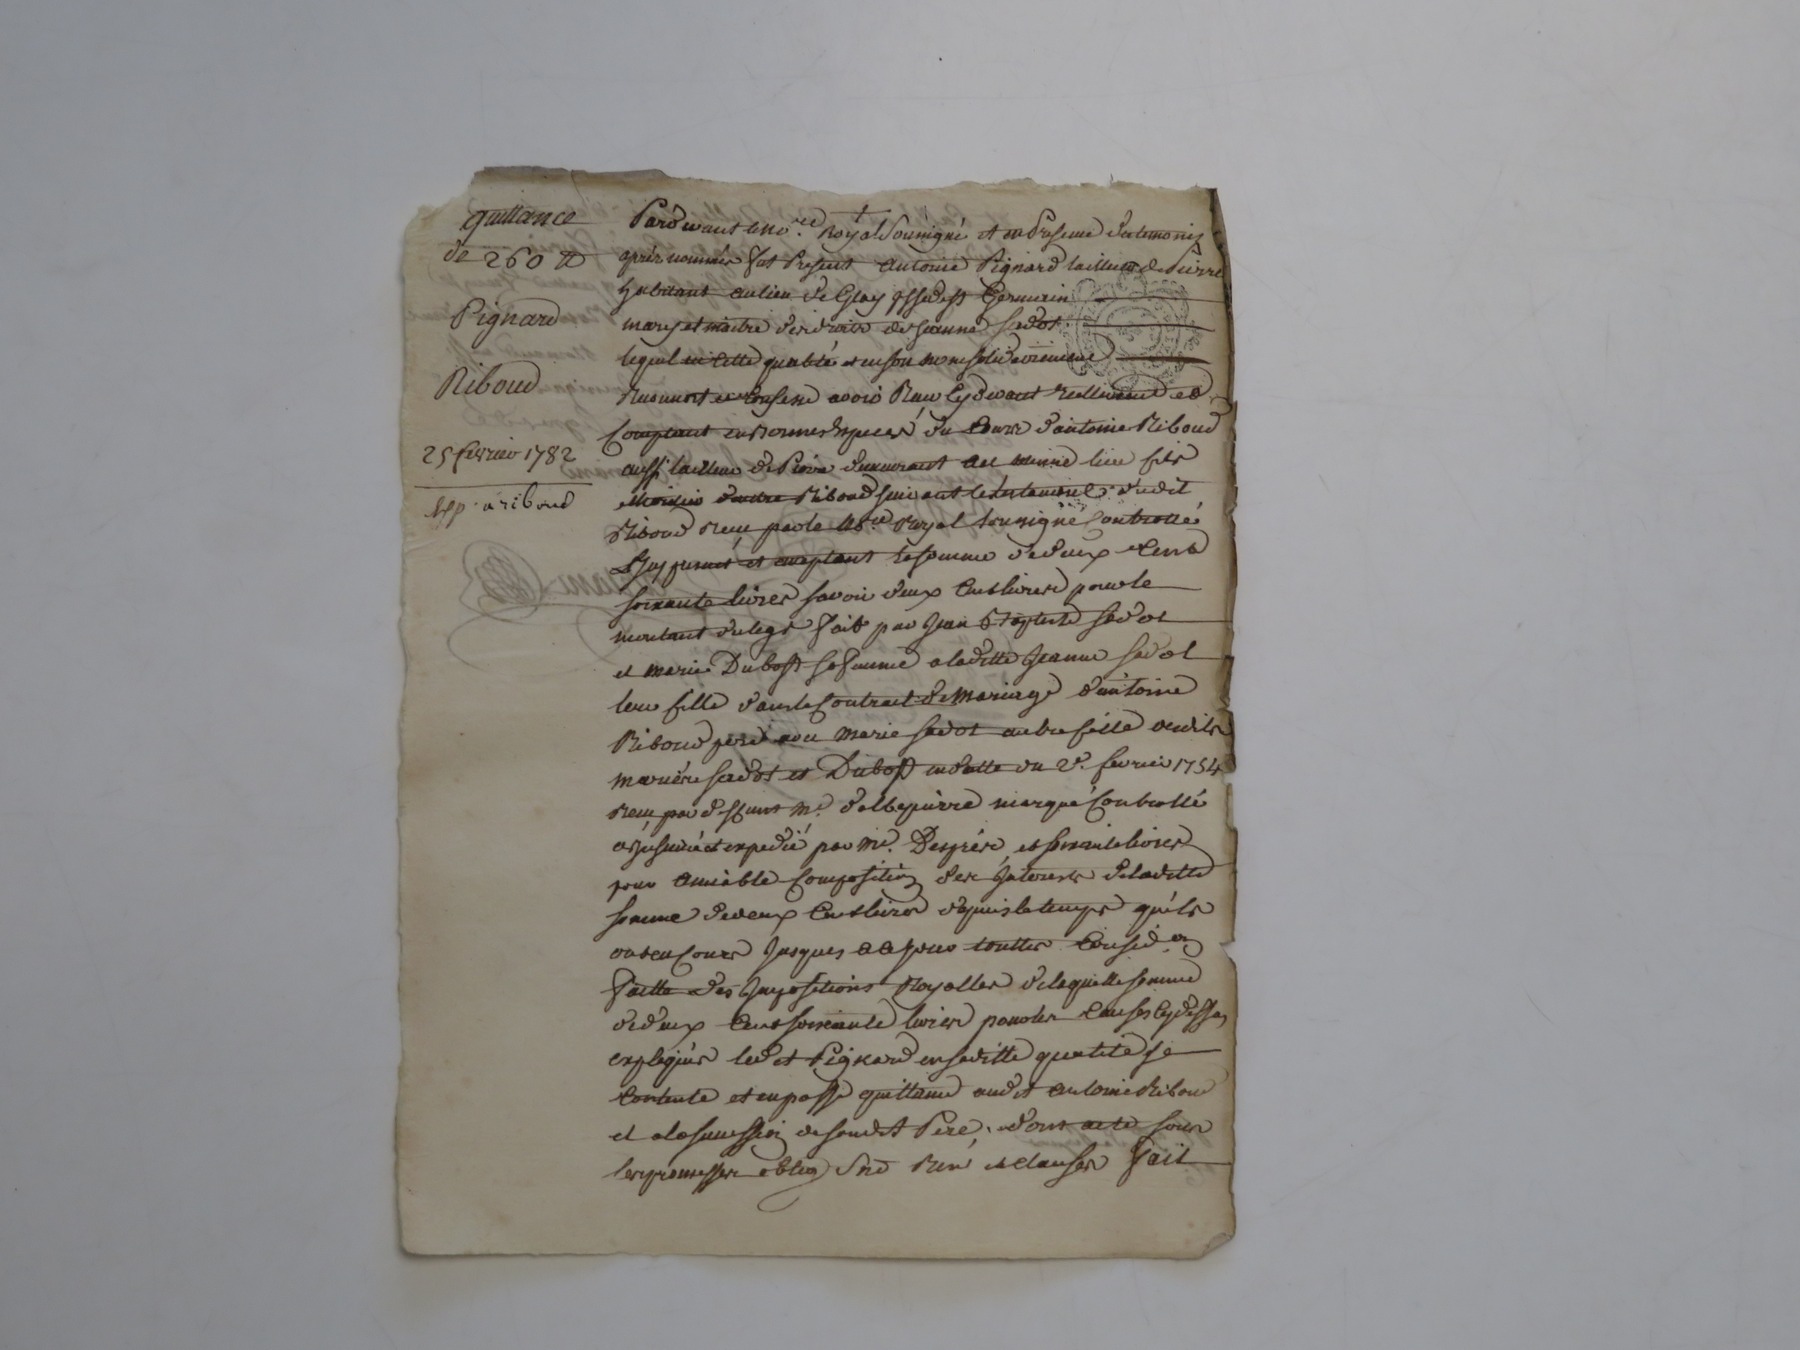 quittance
de 260 ₶
Pignard
Riboud
25 fevrier 1782
Exp. a riboud
Pardevant le no.re Royal soussigné et en presence des temoins
après nommés fut present antoine Pignard tailleur de Pierre
habitant au lieu de Glay psse de st Germain
mary et maitre des droits de jeanne sadot
lequel en cette qualité et en son nom solidairement
reconnoit et confesse avoir Reçu cy devant reellement et
Comptant en bonnes especes du Cours d'antoine Riboud
aussi tailleur de Pierre demeurant au meme lieu fils
heritier d'autre Riboud suivant le testament dudit
Riboud Reçu par le no.re Royal soussigné Controllé
icy present et acceptant la somme de deux Cents
soixante livres savoir deux Cent livres pour le
montant du legs fait par jean Baptiste sadot
et marie Dubost sa femme a laditte jeanne sadot
leur fille dans le Contract de Mariage d'antoine
Riboud pere avec marie sadot autre fille desdits
mariés sadot et Dubost en datte du 2e. fevrier 1754
Reçu par deffunt Me. dalbepierre marqué Controllé
insinué et expedié par Me. Desprès, et soixante livres
pour amiable Composition des jnterets de laditte
somme de deux Cent livres depuis le temps qu'ils
ont eu Cours jusques a ce jour touttes Consid.on
faitte des jmpositions Royalles de laquelle somme
de deux Cent soixante livres pour les Causes cy dessus
expliqués ledit Pignard en saditte qualité se
Contente et en passe quittance audit antoine Riboud
et a la succession de sondit Pere, dont acte sous
les promesses oblig soud Ren et Clauses fait